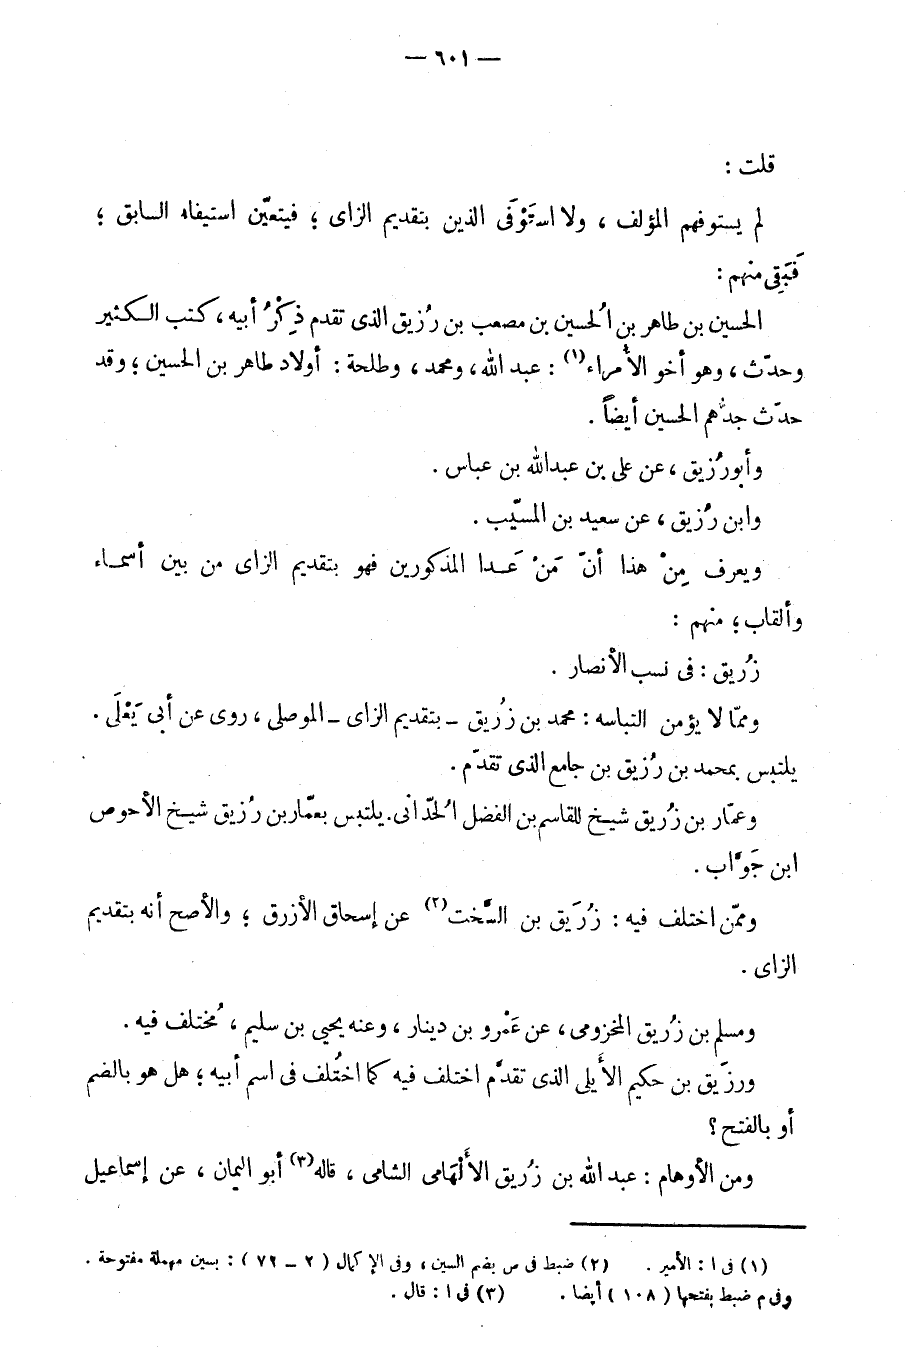 — ٦٠١ —
قلت :
لم يستوفهم المؤلف ، ولا استَوْفَى الذين بتقديم الزاى ؛ فيتعيّن استيفاء السابق ؛
فَبَقِى منهم :
الحسين بن طاهر بن الُحسين بن مصعب بن رُزيق الذى تقدم ذِكْرُ أبيه ، كتب الكثير
وحدّث ، وهو أخو الأُمراء(١) : عبد الله ، ومحمد ، وطلحة : أولاد طاهر بن الحسين ؛ وقد
حدّث جدُّهم الحسين أيضاً .
وأبو رُزيق ، عن على بن عبدالله بن عباس .
وابن رُزيق ، عن سعيد بن المسيّب .
ويعرف مِنْ هذا أنّ مَنْ عَدا المذكورين فهو بتقديم الزاى من بين أسماء
وألقاب ؛ منهم :
زُريق : فى نسب الأنصار .
وممّا لا يؤمن التباسه : محمد بن زُريق ــ بتقديم الزاى ــ الموصلى ، روى عن أبى يَعْلَى .
يلتبس بمحمد بن رُزيق بن جامع الذى تقدّم .
وعمّار بن زُريق شيخ للقاسم بن الفضل الُحدّانى. يلتبس بعمّار بن رُزيق شيخ الأحوص
ابن جَوَّاب .
وممّن اختلف فيه : زُرَيق بن السُّخت(٢) عن إسحاق الأزرق ؛ والأصح أنه بتقديم
الزاى .
ومسلم بن زُريق المخزومى ، عن عَمْرو بن دينار ، وعنه يحيى بن سليم ، مُختلف فيه .
ورزَيق بن حكيم الأَيلى الذى تقدَّم اختلف فيه كما اختُلف فى اسم أبيه ؛ هل هو بالضم
أو بالفتح ؟
ومن الأوهام : عبد الله بن زُريق الأَلْهانى الشامى ، قاله(٣) أبو اليمان ، عن إسماعيل
(١) فى ا : الأمير . (٢) ضبط فى ص بضم السين ، وفى الإكمال ( ٢ ــ ٧٢ ) : بسين مهملة مفتوحة .
وفى م ضبط بفتحها ( ١٠٨ ) أيضا . (٣) فى ا : قال .